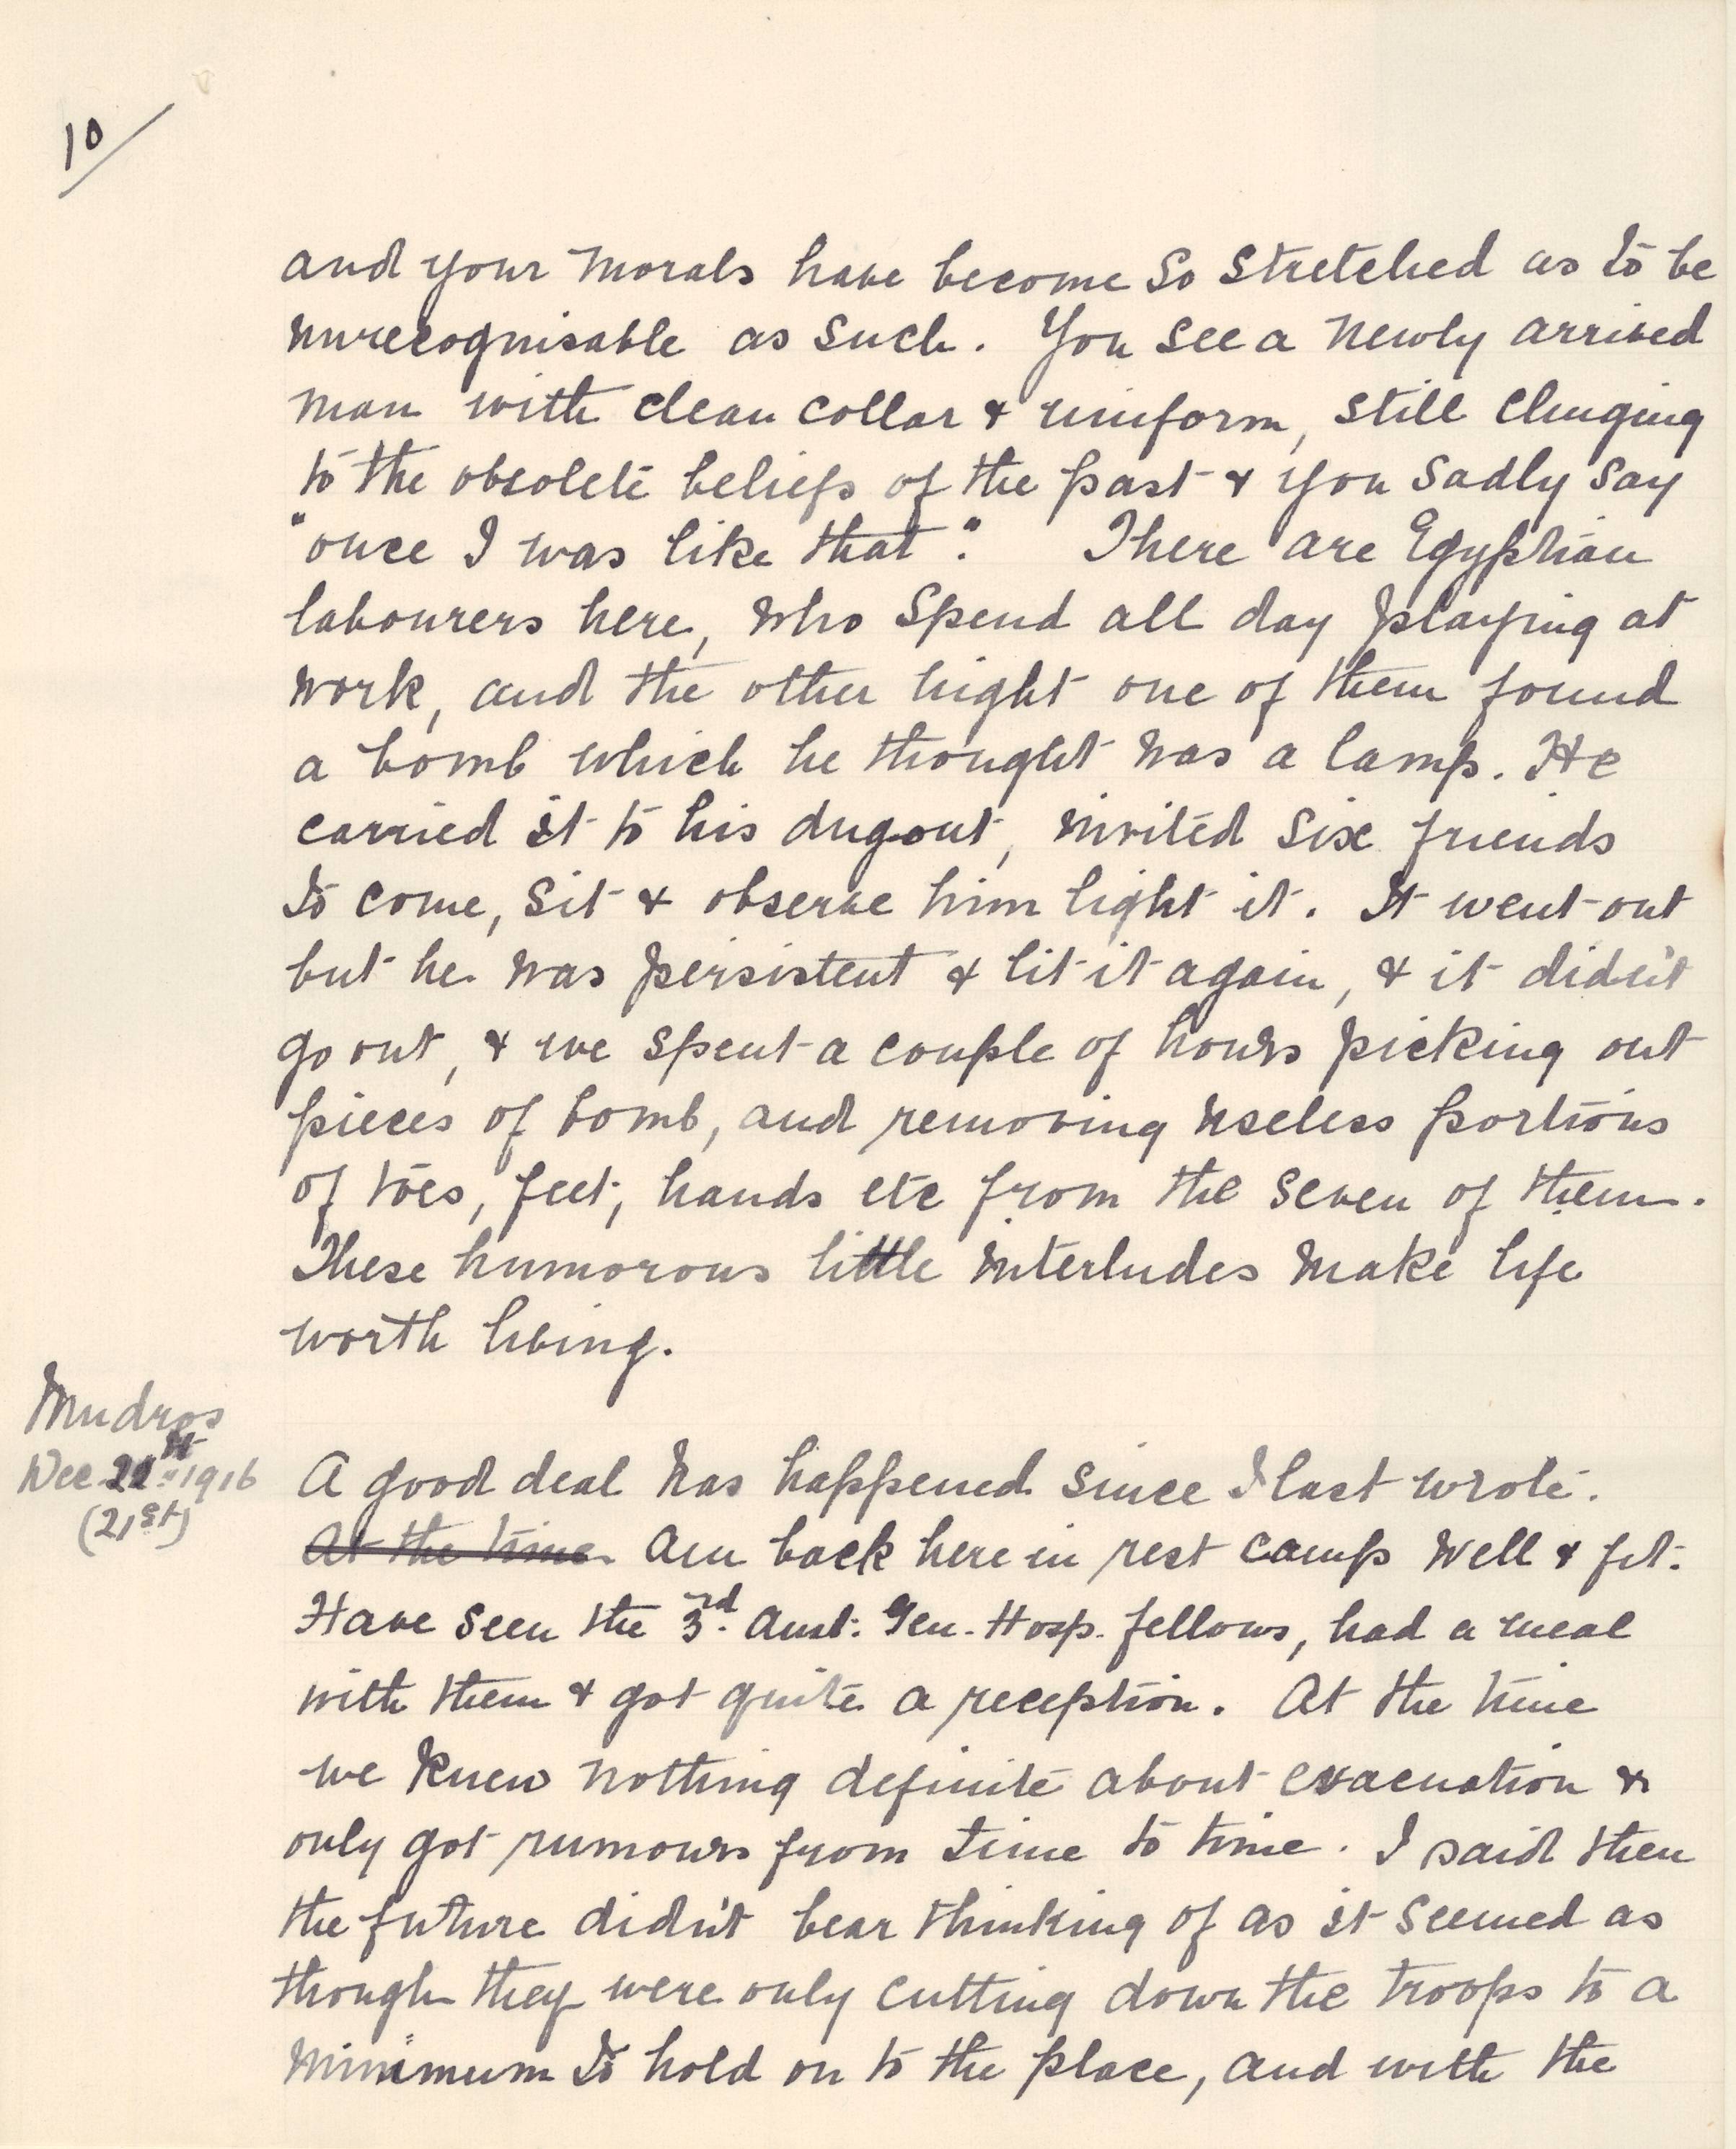 10
and your morals have become so stretched as to be
unrecognisable as such. You see a newly arrived
man with clean collar & uniform, still clinging
to the obsolete beliefs of the past & you sadly say
"once I was like that". There are Egyptian
labourers here, who spend all day playing at
work, and the other night one of them found
a bomb which he thought was a lamp. He
carried it to his dugout, invited six friends
to come, sit & observe him light it. It went out
but he was persistent & lit it again, & it didn't
go out, & we spent a couple of hours picking out
pieces of bomb, and removing useless portions
of toes, feet, hands etc from the seven of them.
These humorous little interludes make life
worth living.
Mudros
Dec. 21st 1916
(21st)
A good deal has happened since I last wrote.
At the time. Am back here in rest camp well & fit.
Have seen the 3rd. Aust. Gen. Hosp. fellows, had a meal
with them & got quite a reception. At the time
we knew nothing definite about evacuation &
only got rumours from time to time. I said then
the future didn't bear thinking of as it seemed as
though they were only cutting down the troops to a
minimum to hold on to the place, and with the